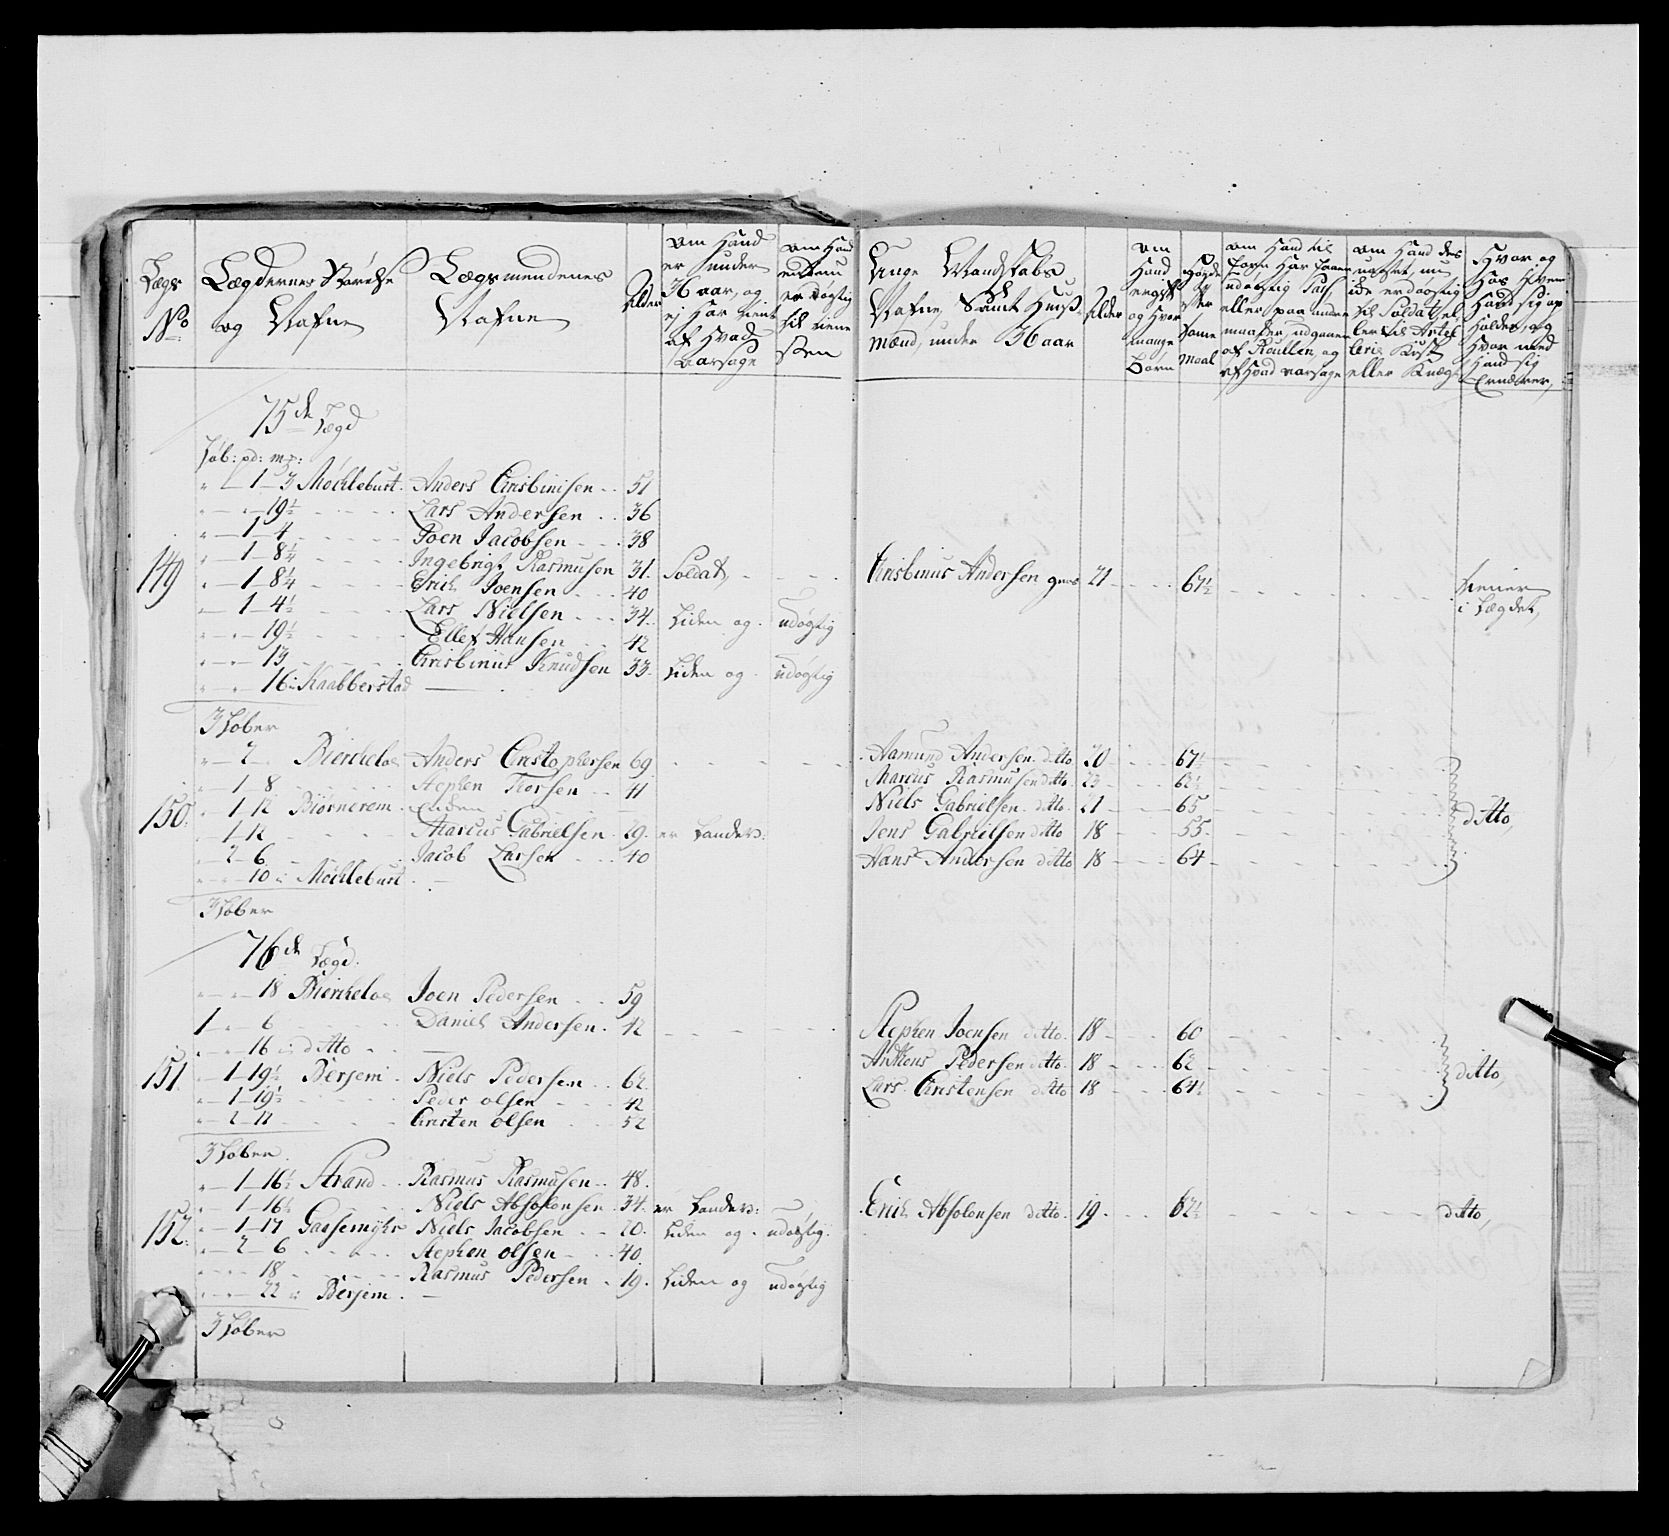 Lægs No
Lægdernes Størelse og Nafne
Lægsmendenes Nafne
Alder
om Hand er under 36 aar, og ej har tient af hvad aarsage
om Hand endnu er døgtig til tiene sten
Unge Mandskabs Nafne, Samt Huus mænd, under 36 aar
Alder
om Hand er gift og hvor mange Børn
Høyde efter Tomme maal
Hvor og hos hvem Hand sig op holder, og hvor med Hand sig Ernærer,
75de Lægd
Løb: pd: mrk:
149
" 1 3 Mochlebust Anders Crisbinisen 51
" " 19½ Lars Andersen 36
" 1 4 Joen Jacobsen 38
" 1 8¼ Ingebrigt Rasmusen 31. Soldat,
Crisbinus Andersen gnos 21 67½ tiener i Lægdet,
" 1 8¼ Erich Joensen 40
" 1 4½ Lars Nielsen 34. Liden og udøgtig
" " 19½ Ellef Hansen 42
" " 13 Crisbinus Knudsen 33. Liden og udøgtig
" " 16 i Raabberstad
3 Løber
150.
" 2 " Bierkeloe Anders Cristophersen 69
Aamund Andersen ditto 20 67½
" 1 8 Stephen Thorsen 41
Marcus Rasmusen ditto 23 62½
" 1 12 Biørnerem Enken
Niels Gabrielsen ditto 21 65 ditto,
" 1 12 Marcus Gabrielsen 29. er Landev:
Jens Gabrielsen ditto 18 55
" 2 6 Jacob Larsen 40
Hans Andersen ditto 18 64
" " 10 i Mochlebust
3 Løber
76de Lægd.
151.
" " 18 Bierkeloe Joen Pedersen 59
1 " 6 Daniel Andersen 42
Stephen Joensen ditto 18 60
" " 16 i ditto
Anthons Pedersen ditto 18 62 ditto,
" 1 19½ Berjem Niels Pedersen 62
Lars Christensen ditto 18 64½
" 1 19½ Peder olsen 42
" 2 11 Cristen olsen 52
3 Løber.
152.
" 1 16½ Strand Rasmus Rasmusen 48.
" 1 16½ Niels Absolonsen 34. er Landev:
Erich Absolonsen ditto 19 62½ ditto,
" 1 17 Gaasemyhr Niels Jacobsen 20. Liden og udøgtig.
" 2 6 Stephen olsen 40
" " 18 Rasmus Pedersen 19. Liden og udøgtig
" " 22 i Berjem
3 Løber